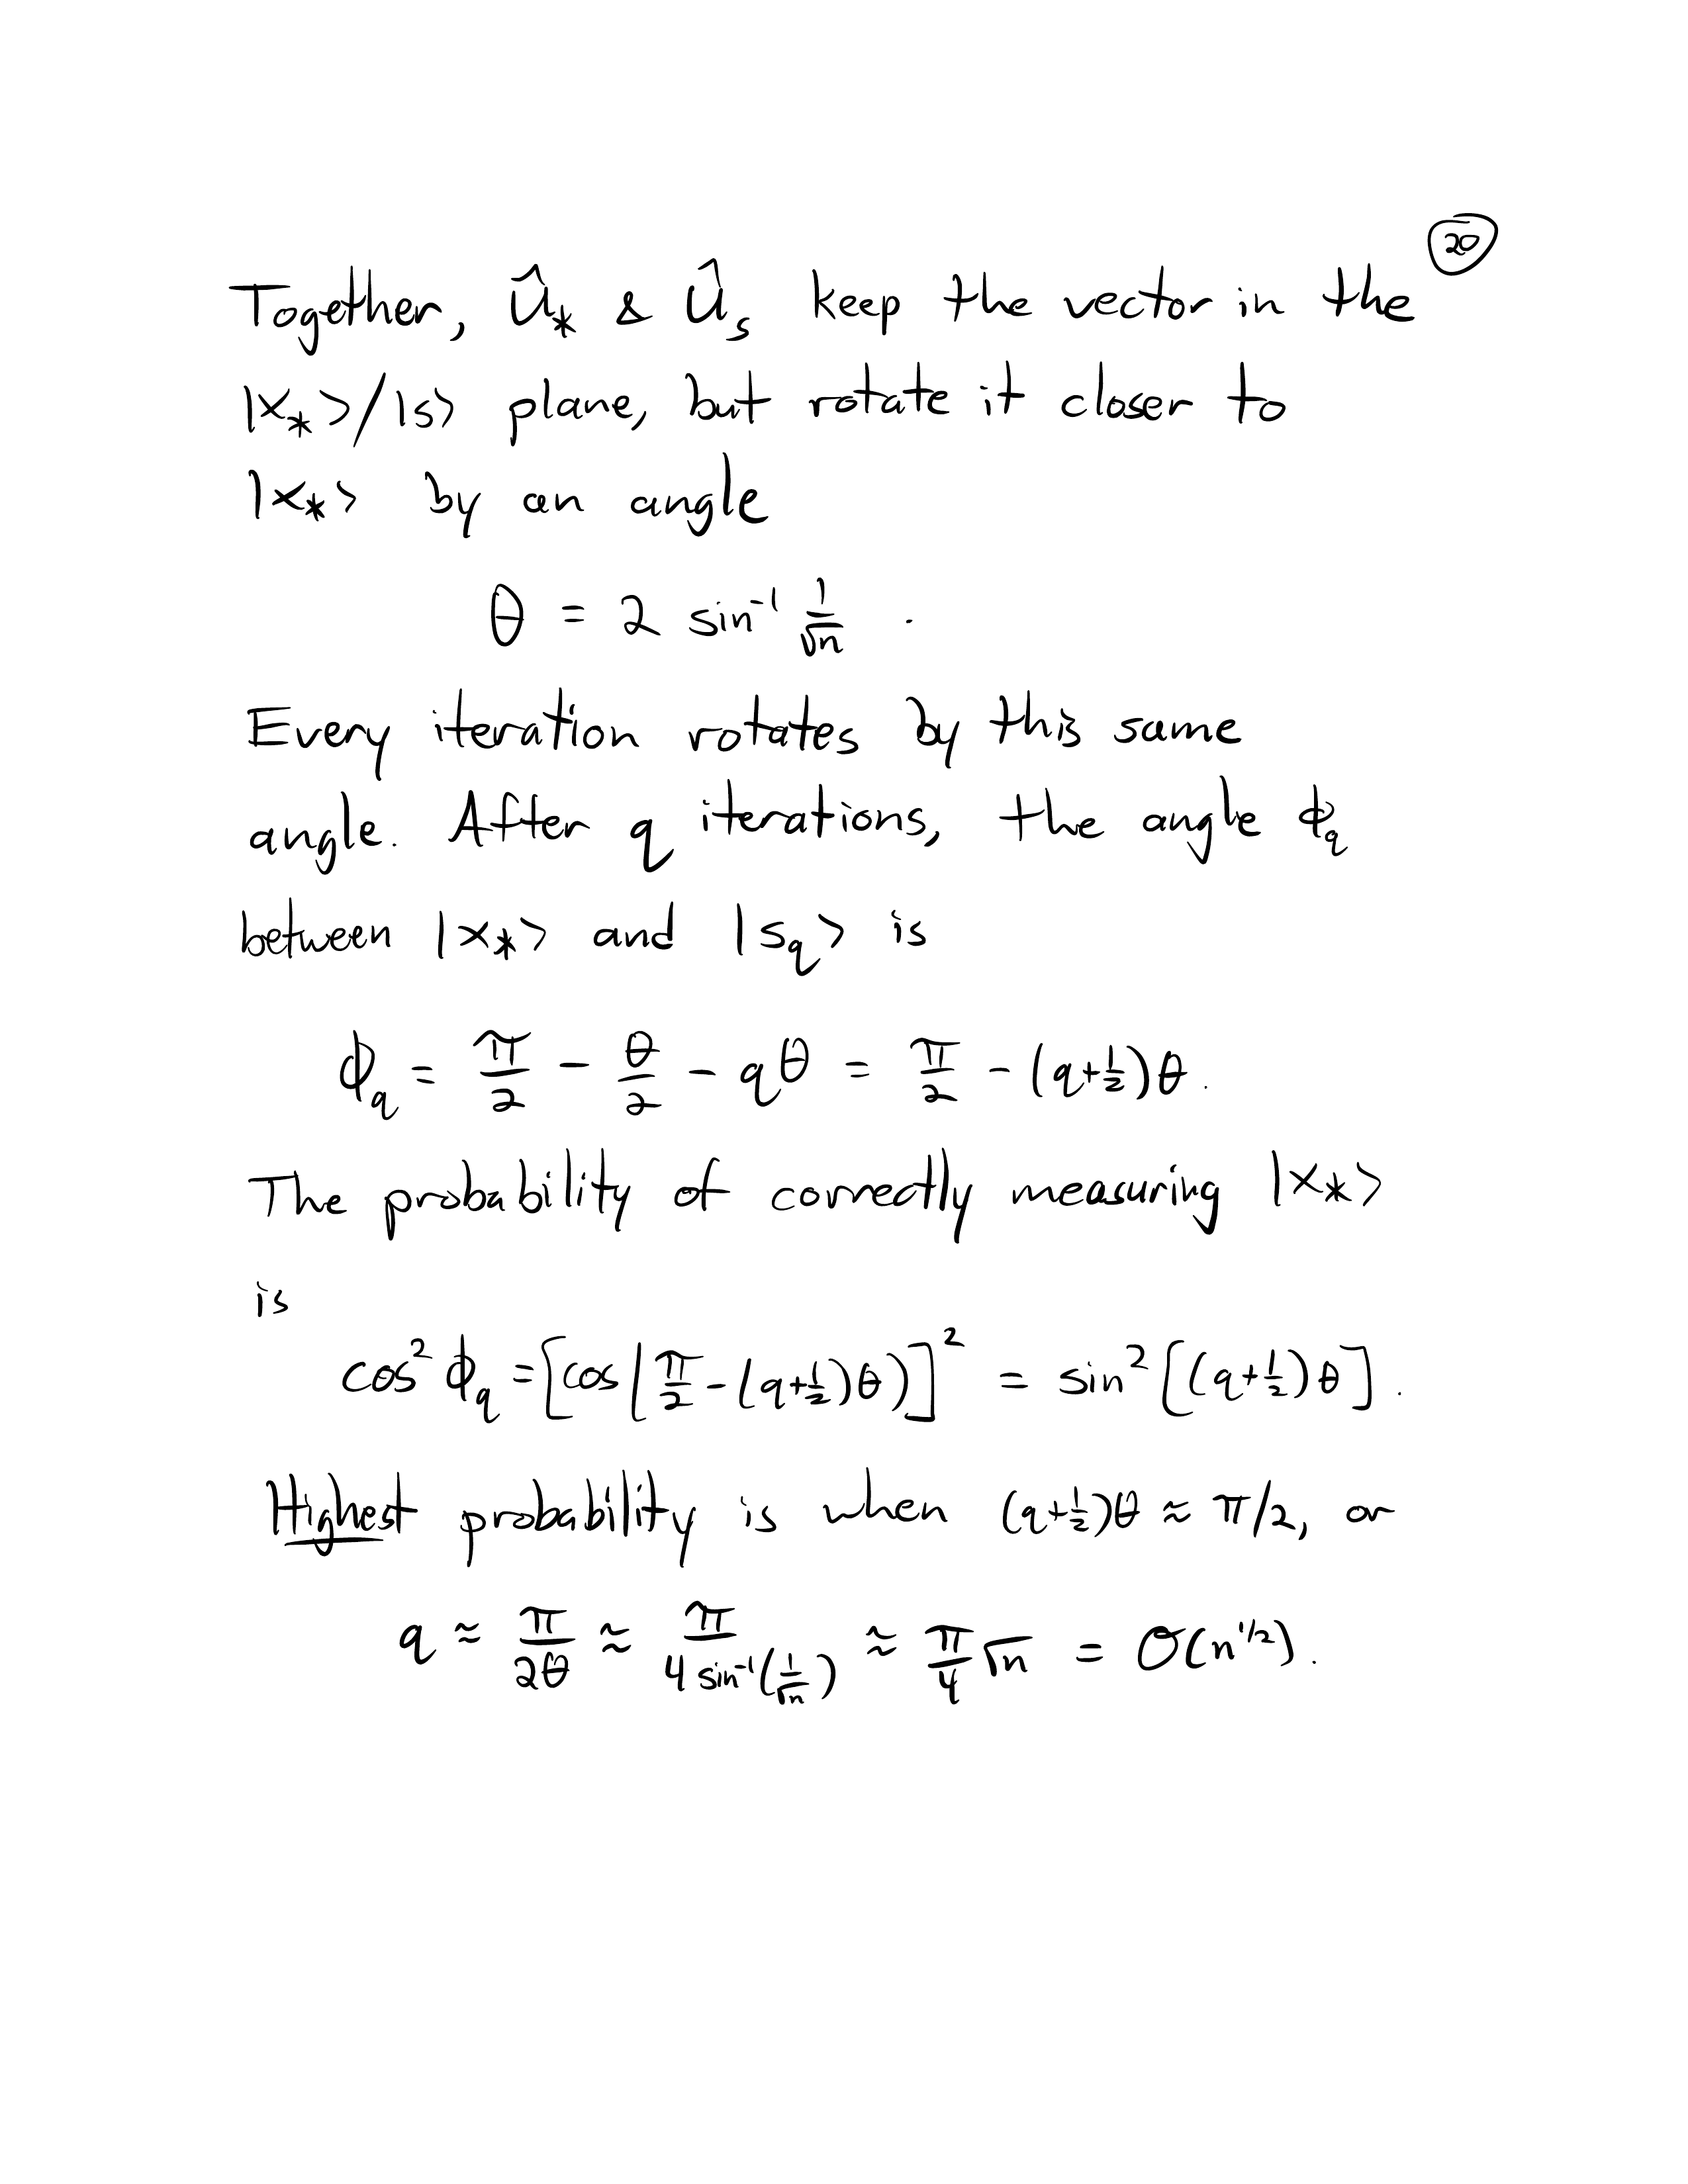 20
Together, Û_* & Û_s keep the vector in the
|x_*>/|s> plane, but rotate it closer to
|x_*> by an angle
θ = 2 sin⁻¹ 1/√n .
Every iteration rotates by this same
angle. After q iterations, the angle ϕ_q
between |x_*> and |s_q> is
ϕ_q = π/2 - θ/2 - qθ = π/2 - (q+½)θ.
The probability of correctly measuring |x_*>
is
cos² ϕ_q = [cos(π/2 - (q+½)θ)]² = sin² [(q+½)θ].
Highest probability is when (q+½)θ ≈ π/2, or
q ≈ π/2θ ≈ π/4 sin⁻¹(1/√n) ≈ π/4 √n = O(n^1/2).